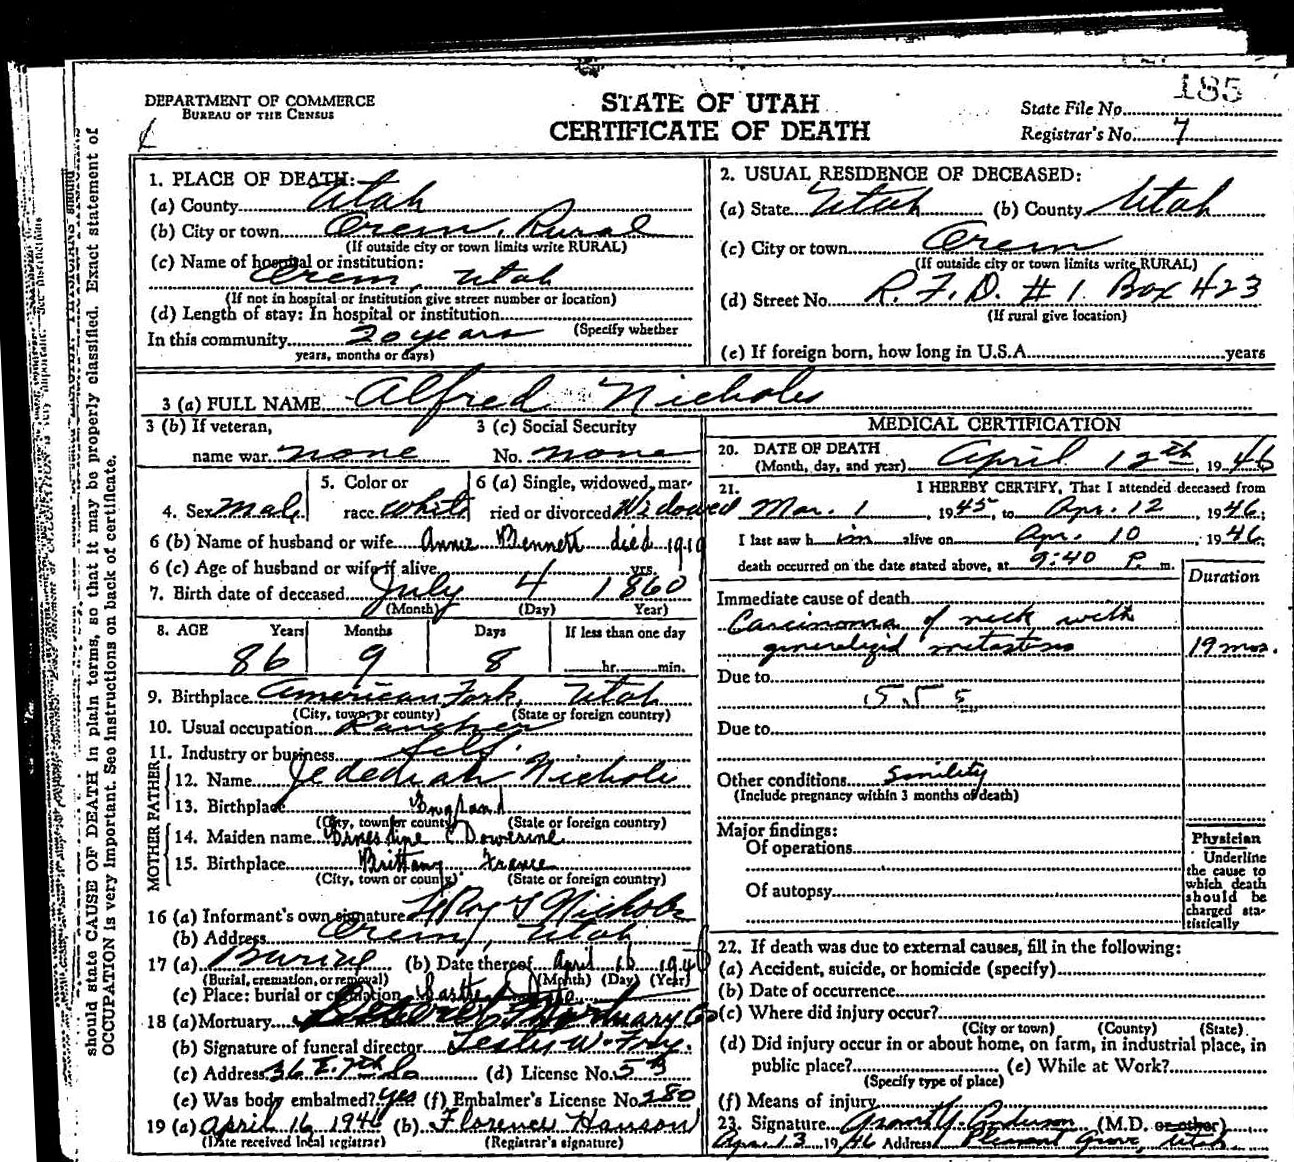 185
DEPARTMENT OF COMMERCE
BUREAU OF THE CENSUS
STATE OF UTAH
CERTIFICATE OF DEATH
State File No.
Registrar's No. 7
should state CAUSE OF DEATH in plain terms, so that it may be properly classified. Exact statement of
OCCUPATION is very important. See instructions on back of certificate.
1. PLACE OF DEATH:
(a) County Utah
(b) City or town Orem, Rural
(If outside city or town limits write RURAL)
(c) Name of hospital or institution:
Orem, Utah
(If not in hospital or institution give street number or location)
(d) Length of stay: In hospital or institution
(Specify whether
In this community 20 years
years, months or days)
2. USUAL RESIDENCE OF DECEASED:
(a) State Utah (b) County Utah
(c) City or town Orem
(If outside city or town limits write RURAL)
(d) Street No. R.F.D. #1 Box 423
(If rural give location)
(e) If foreign born, how long in U.S.A. years
3 (a) FULL NAME Alfred Nicholes
3 (b) If veteran, 3 (c) Social Security
name war none No. none
4. Sex Male 5. Color or race White 6 (a) Single, widowed, married or divorced Widowed
6 (b) Name of husband or wife Annie Bennett died 1919
6 (c) Age of husband or wife if alive yrs.
7. Birth date of deceased July 4 1860
(Month) (Day) Year)
8. AGE Years Months Days If less than one day
86 9 8 hr. min.
9. Birthplace American Fork, Utah
(City, town, or county) (State or foreign country)
10. Usual occupation Rancher
11. Industry or business Self
FATHER
12. Name Jedediah Nichols
13. Birthplace England
(City, town or county) (State or foreign country)
MOTHER
14. Maiden name Ernestine
15. Birthplace Brittany France
(City, town or county) (State or foreign country)
16 (a) Informant's own signature LeRoy S Nichols
(b) Address Orem, Utah
17 (a) Burial (b) Date thereof April 16 1946
(Burial, cremation, or removal) (Month) (Day) (Year)
(c) Place: burial or cremation
18 (a) Mortuary Mortuary Co
(b) Signature of funeral director Leslie W.
(c) Address 36 E. 7th So (d) License No.
(e) Was body embalmed? Yes (f) Embalmer's License No. 280
19 (a) April 16 1946 (b) Florence Hanson
(Date received local registrar) (Registrar's signature)
MEDICAL CERTIFICATION
20. DATE OF DEATH
(Month, day, and year) April 12th, 1946
21. I HEREBY CERTIFY, That I attended deceased from
Mar. 1, 1945, to Apr. 12, 1946;
I last saw him alive on Apr. 10, 1946;
death occurred on the date stated above, at 9:40 P. m.
Duration
Immediate cause of death
Carcinoma of neck with
generalized metastasis 19 mos.
Due to
555
Due to
Other conditions Senility
(Include pregnancy within 3 months of death)
Major findings:
Of operations
Of autopsy
Physician
Underline
the cause to
which death
should be
charged statistically
22. If death was due to external causes, fill in the following:
(a) Accident, suicide, or homicide (specify)
(b) Date of occurrence
(c) Where did injury occur?
(City or town) (County) (State)
(d) Did injury occur in or about home, on farm, in industrial place, in
public place? (e) While at Work?
(Specify type of place)
(f) Means of injury
23. Signature Grant Y. Anderson (M.D. or other)
Apr. 13 1946 Address Pleasant Grove, Utah